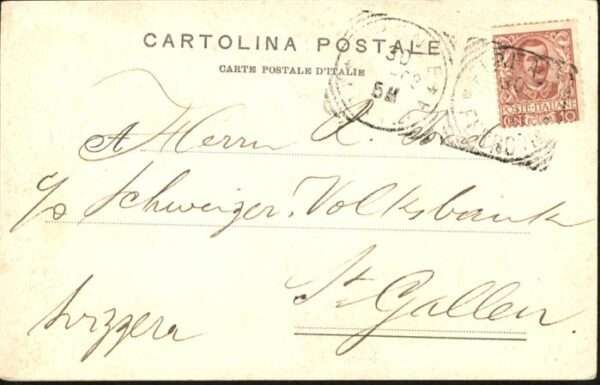 CARTOLINA POSTALE
CARTE POSTALE D'ITALIE
30
5M
POSTE·ITALIANE
10
A Herrn R.
c/o Schweizer. Volksbank
St Gallen
Svizzera